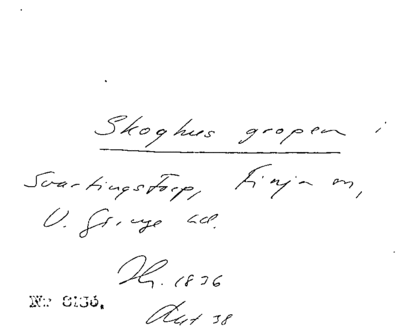 Skoghus gropen i
Svartingstorp, Finja sn,
V. Göinge hd.
1836
No 8136.
38